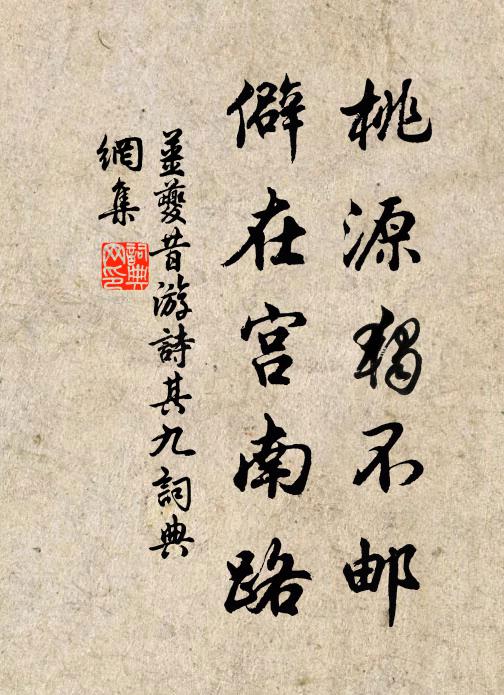 桃源獨不邮
僻在宫南路
姜夔昔游詩其九詞典
網集
詞典
网印